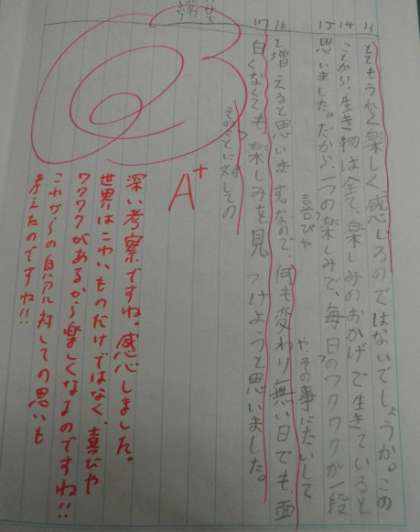 とてもうれしく楽しく感じるのではないでしょうか。この
ことから、生き物は全て、楽しみのおかげで生きていると
思いました。だから、一つの楽しみで、毎日のワクワクが一段
と増えると思います。なので、何も変わり無い日でも、面
白くなくても、楽しみを見つけようと思いました。
喜びや
やその事にたいして
そのことに対しての
A+
深い考察ですね。感心しました。
世界はこわいものだけではなく、喜びや
ワクワクがあるから楽しくなるのですね!!
これからの
対しての思いも
考えたのですね!!